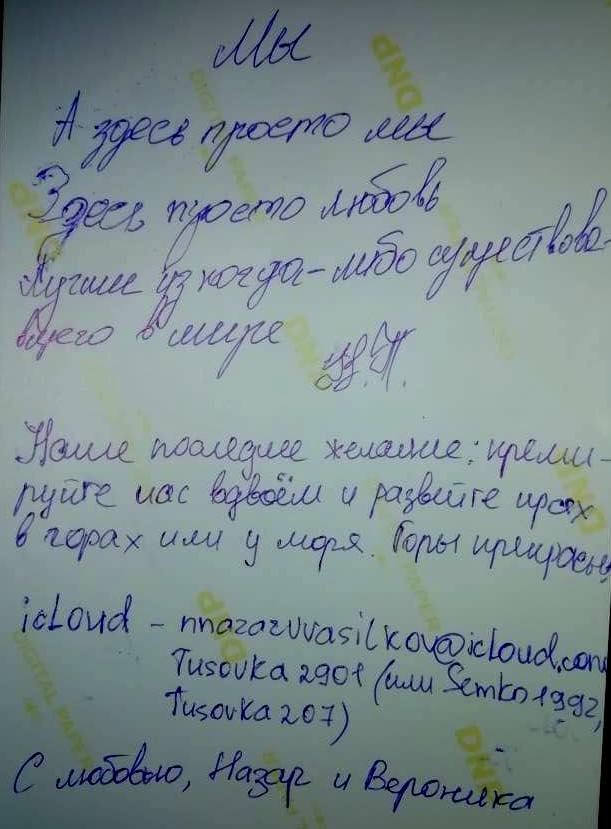 Мы
А здесь просто мы
Здесь просто любовь
Лучшее из когда-либо существова-
вшего в мире
Н.П.
Наше последнее желание: креми-
руйте нас вдвоём и развейте прах
в горах или у моря. Горы прекрасны
icloud - nnazarvvasilkov@icloud.com
Tusovka2901 (или Semko1992,
Tusovka207)
С любовью, Назар и Вероника
DNP
DIGITAL PAPER
DNP
DNP
DNP
DNP
DIGITAL PAPER
DNP